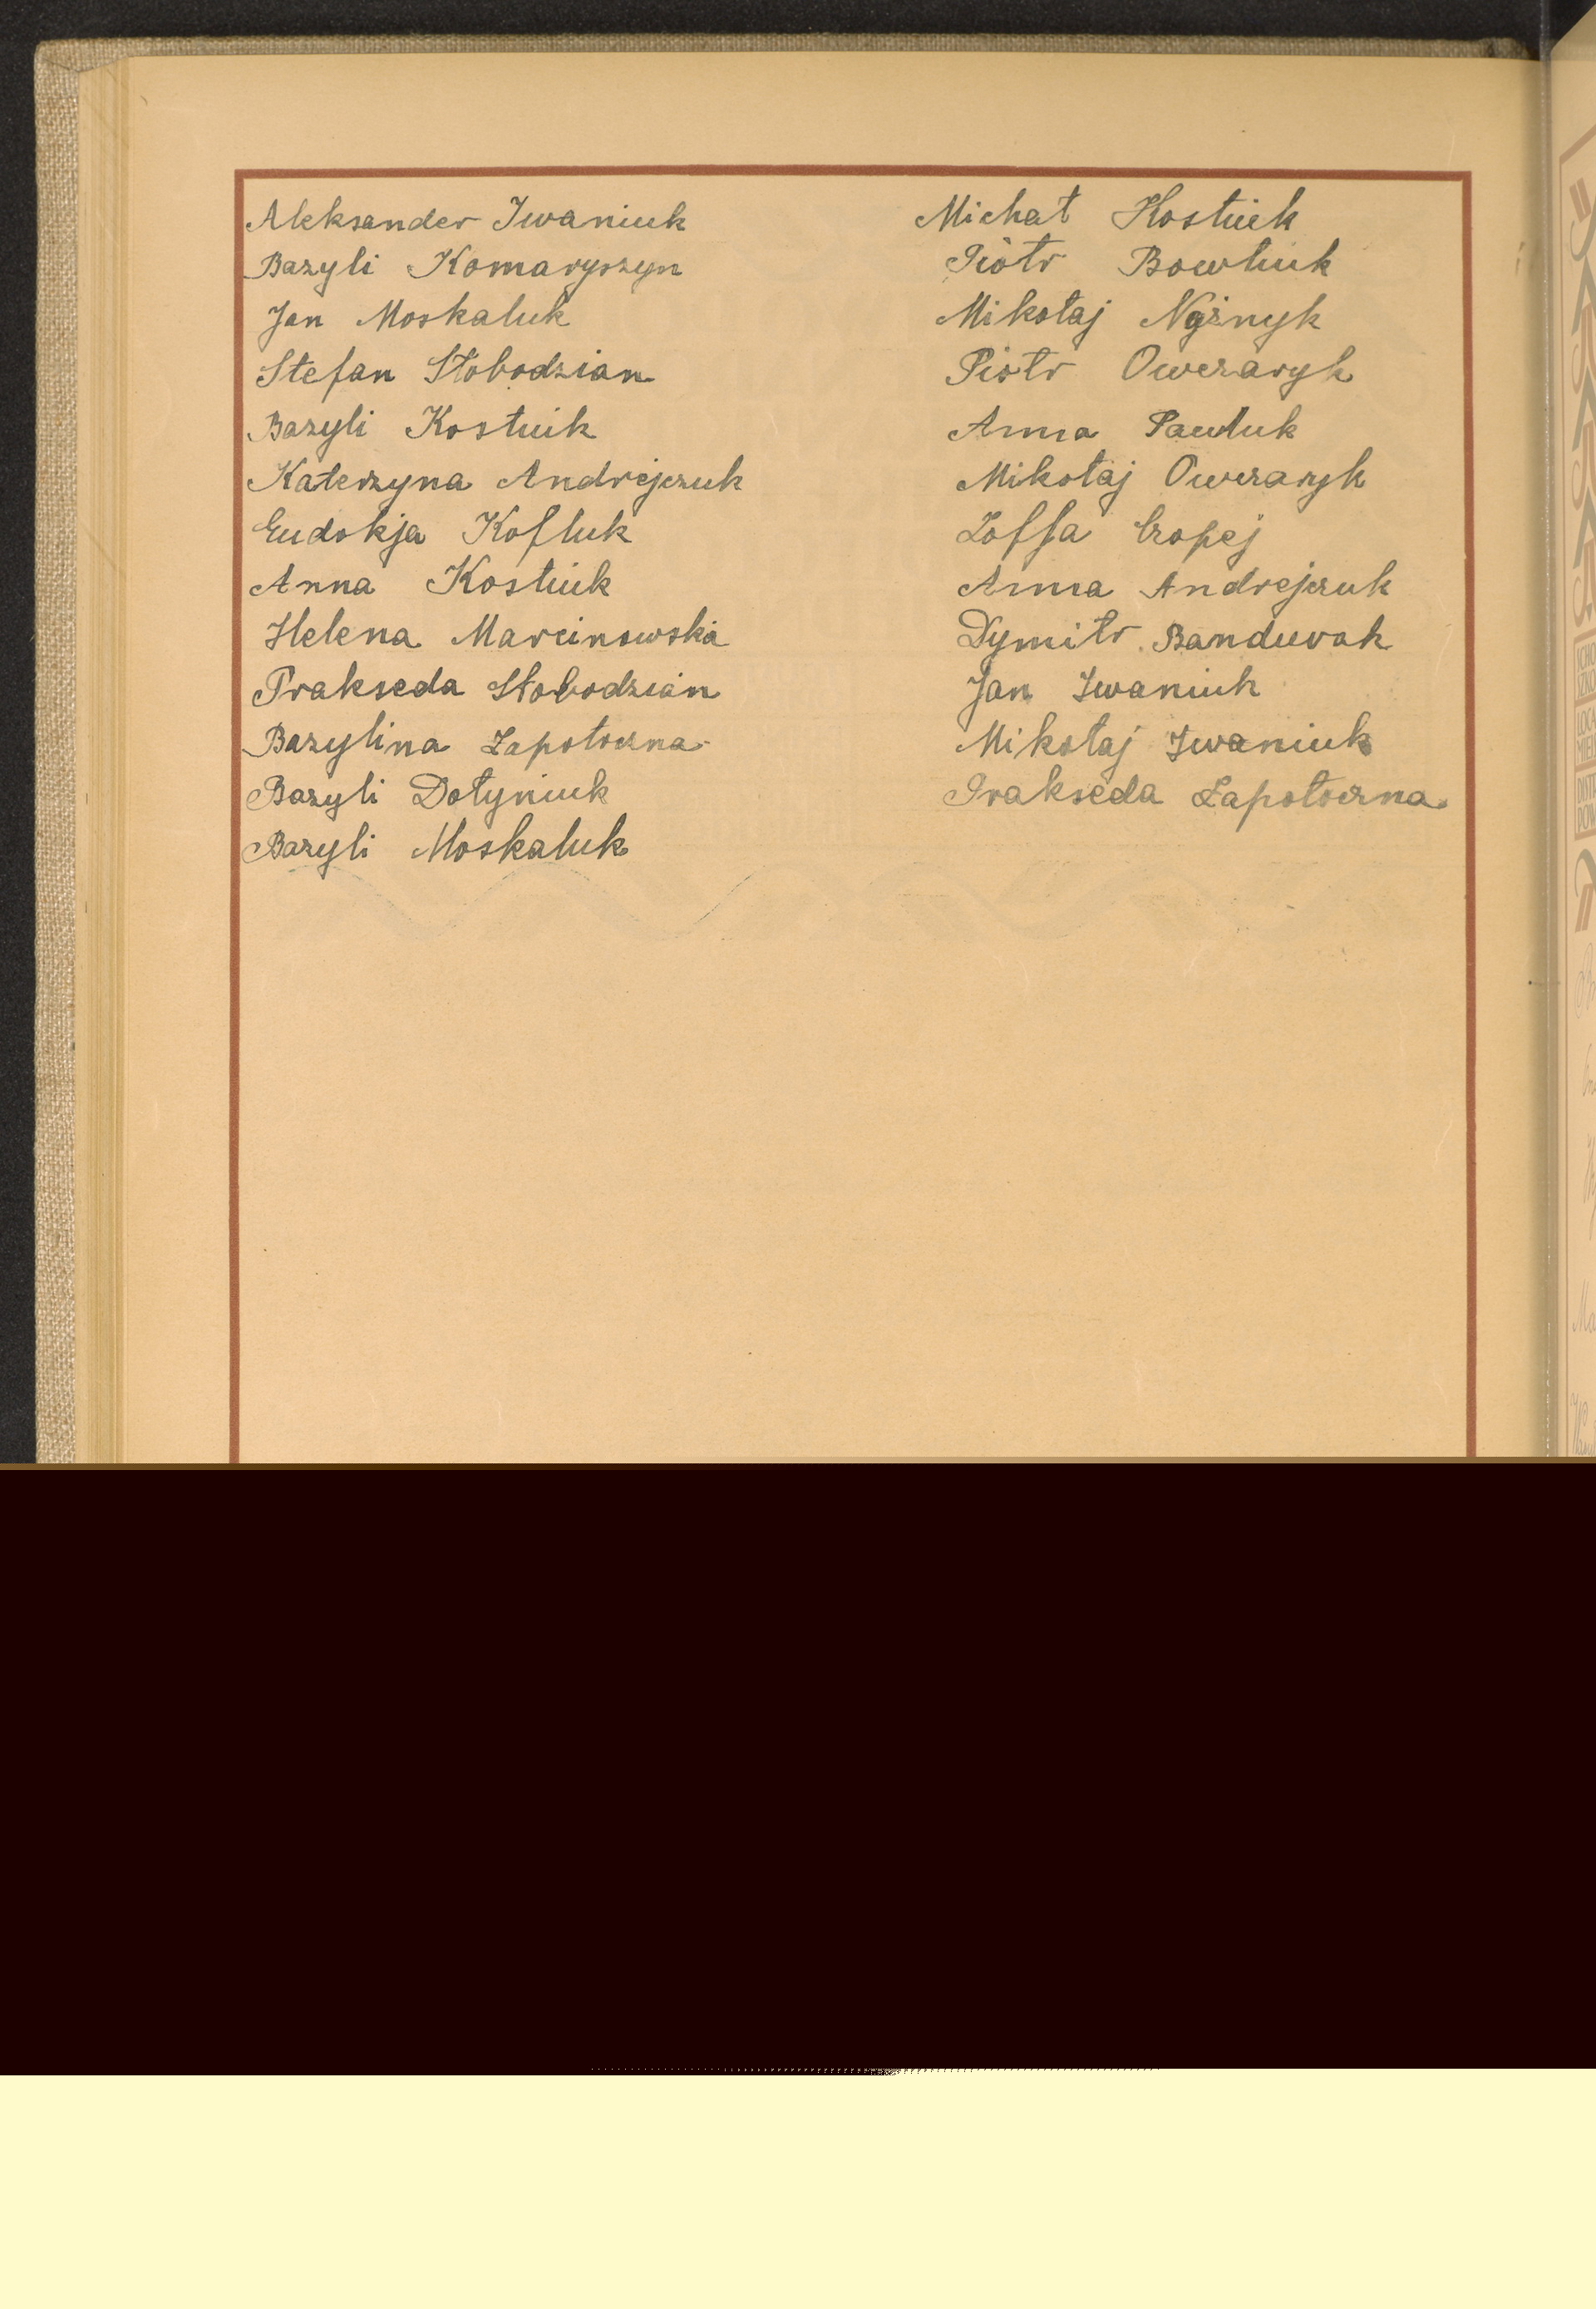 Aleksander Iwaniuk
Bazyli Komaryszyn
Jan Moskaluk
Stefan Słobodzian
Bazyli Kostiuk
Katerzyna Andrejczuk
Eudokja Kofluk
Anna Kostiuk
Helena Marcinowska
Prakseda Słobodzian
Bazylina Zapotoczna
Bazyli Dołyniuk
Bazyli Moskaluk
Michał Kostiuk
Piotr Bowliuk
Mikołaj Nyżnyk
Piotr Owczaryk
Anna Pawluk
Mikołaj Owczaryk
Zofja Czopej
Anna Andrejczuk
Dymitr Bandurak
Jan Iwaniuk
Mikołaj Iwaniuk
Prakseda Zapotoczna